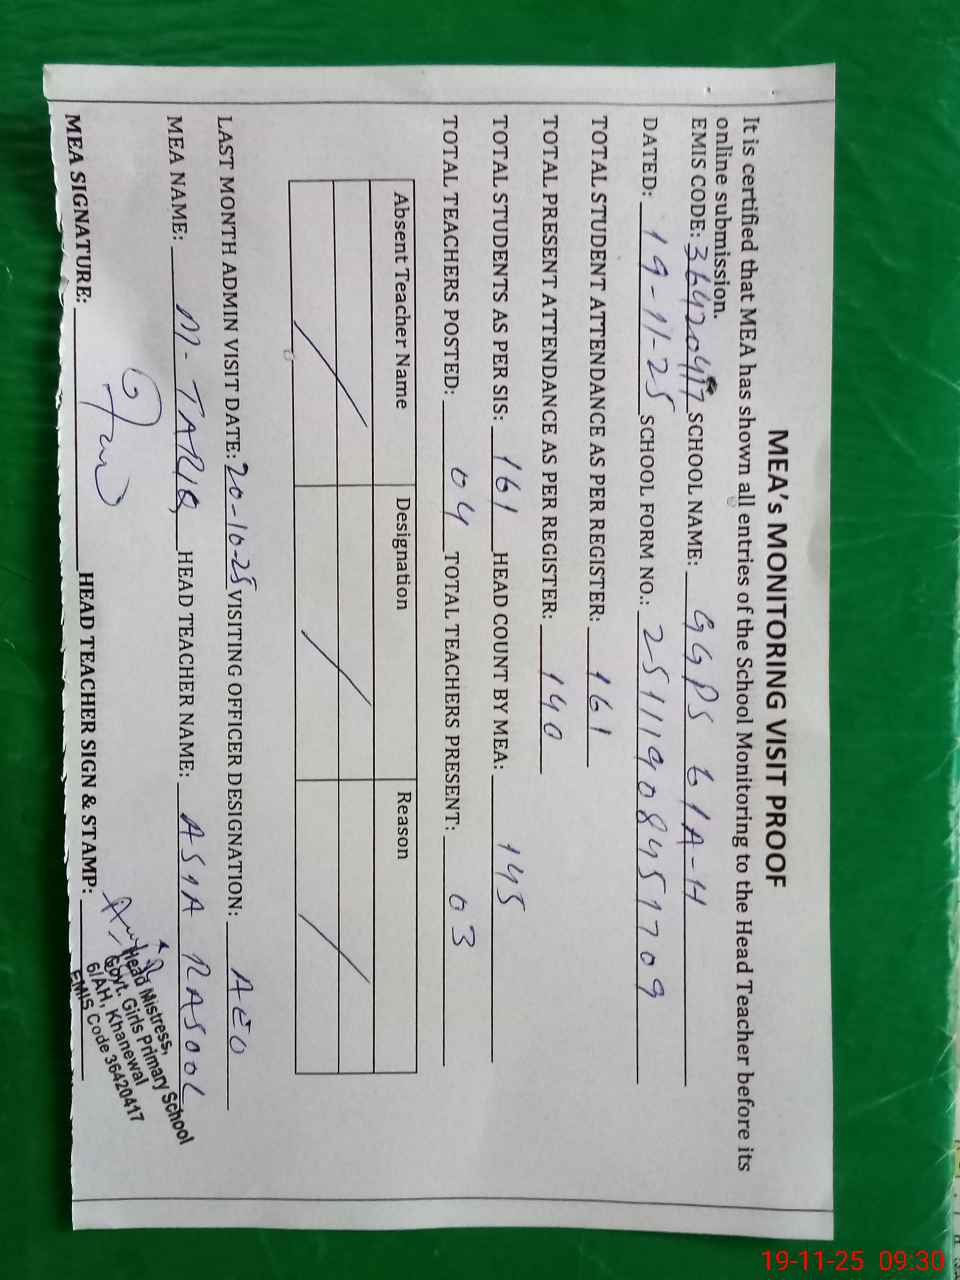 MEA's MONITORING VISIT PROOF
It is certified that MEA has shown all entries of the School Monitoring to the Head Teacher before its
online submission.
EMIS CODE: 36420417 SCHOOL NAME: GGPS 61A-H
DATED: 19-11-25 SCHOOL FORM NO.: 25111908451709
TOTAL STUDENT ATTENDANCE AS PER REGISTER: 161
TOTAL PRESENT ATTENDANCE AS PER REGISTER: 140
TOTAL STUDENTS AS PER SIS: 161 HEAD COUNT BY MEA: 145
TOTAL TEACHERS POSTED: 04 TOTAL TEACHERS PRESENT: 03
Absent Teacher Name Designation Reason
LAST MONTH ADMIN VISIT DATE: 20-10-25 VISITING OFFICER DESIGNATION: AEO
MEA NAME: M. TARIQ HEAD TEACHER NAME: ASIA RASOOL
MEA SIGNATURE: HEAD TEACHER SIGN & STAMP:
Head Mistress,
Govt. Girls Primary School
6/AH, Khanewal
EMIS Code 36420417
19-11-25 09:30